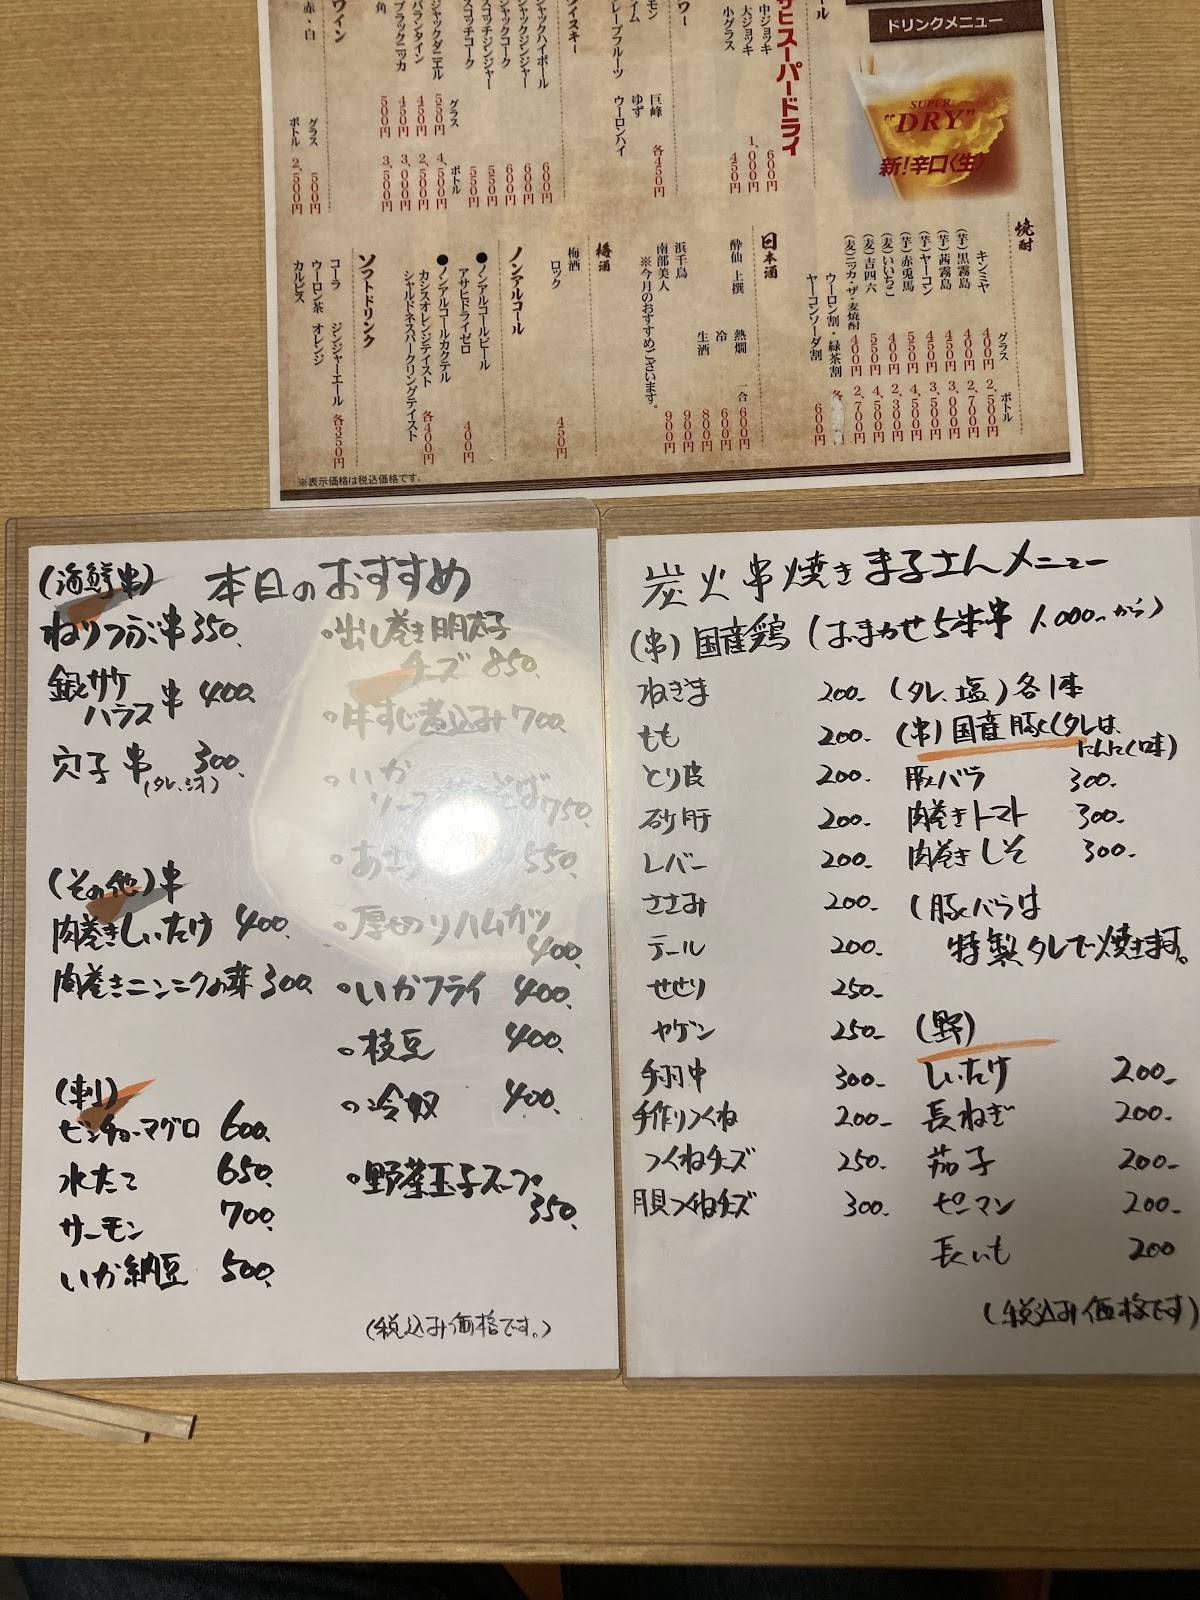 ドリンクメニュー
SUPER
"DRY"
新!辛口〈生〉
ール
サヒスーパードライ
中ジョッキ 600円
大ジョッキ 1,000円
小グラス 450円
ワー
モン 巨峰
イム ゆず
レープフルーツ ウーロンハイ
各450円
イスキー
ジャックハイボール 600円
ジャックジンジャー 600円
ジャックコーク 600円
スコッチジンジャー 550円
スコッチコーク 550円
グラス ボトル
ジャックダニエル 550円 4,500円
バランタイン 450円 2,500円
ブラックニッカ 450円 3,000円
角 500円 3,500円
ワイン
赤・白
グラス 500円
ボトル 2,500円
焼酎
グラス ボトル
キンミヤ 400円 2,500円
(芋)黒霧島 400円 2,700円
(芋)茜霧島 450円 3,000円
(芋)ヤーコン 450円 3,500円
(芋)赤兎馬 450円 4,500円
(麦)いいちこ 400円 2,300円
(麦)吉四六 550円 4,500円
(麦)ニッカ・ザ・麦焼酎 400円 2,700円
ウーロン割・緑茶割 各
ヤーコンソーダ割 600円
日本酒
酔仙 上撰 熱燗 一合 600円
冷 600円
生酒 800円
浜千鳥 900円
南部美人 900円
※今月のおすすめございます。
梅酒
梅酒
ロック 450円
ノンアルコール
●ノンアルコールビール
アサヒドライゼロ 400円
●ノンアルコールカクテル
カシスオレンジテイスト
シャルドネスパークリングテイスト
各400円
ソフトドリンク
コーラ ジンジャーエール
ウーロン茶 オレンジ
カルピス
各350円
※表示価格は税込価格です。
本日のおすすめ
(海鮮串)
ねりつぶ串 350
銀サケ
ハラス串 400
穴子串 300
(タレ、シオ)
(その他)串
肉巻きしいたけ 400
肉巻きニンニクの芽 300
(刺)
ビンチョーマグロ 600
水たこ 650
サーモン 700
いか納豆 500
・出し巻き明太子
チーズ 850
・牛すじ煮込み 700
・いか
750
550
・厚切りハムカツ
400
・いかフライ 400
・枝豆 400
・冷奴 400
・野菜玉子スープ
350
(税込み価格です。)
炭火串焼きまるさんメニュー
(串)国産鶏(おまかせ5本串 1,000-から)
ねぎま 200-
もも 200-
とり皮 200-
砂肝 200-
レバー 200-
ささみ 200-
テール 200-
せせり 250-
ヤゲン 250-
手羽中 300-
手作りつくね 200-
つくねチーズ 250-
明太つくねチーズ 300-
(タレ、塩)各1本
(串)国産豚(タレは、
にんにく味)
豚バラ 300-
肉巻きトマト 300-
肉巻きしそ 300-
(豚バラは
特製タレで焼きます。
(野)
しいたけ 200-
長ねぎ 200-
茄子 200-
ピーマン 200-
長いも 200
(税込み価格です)